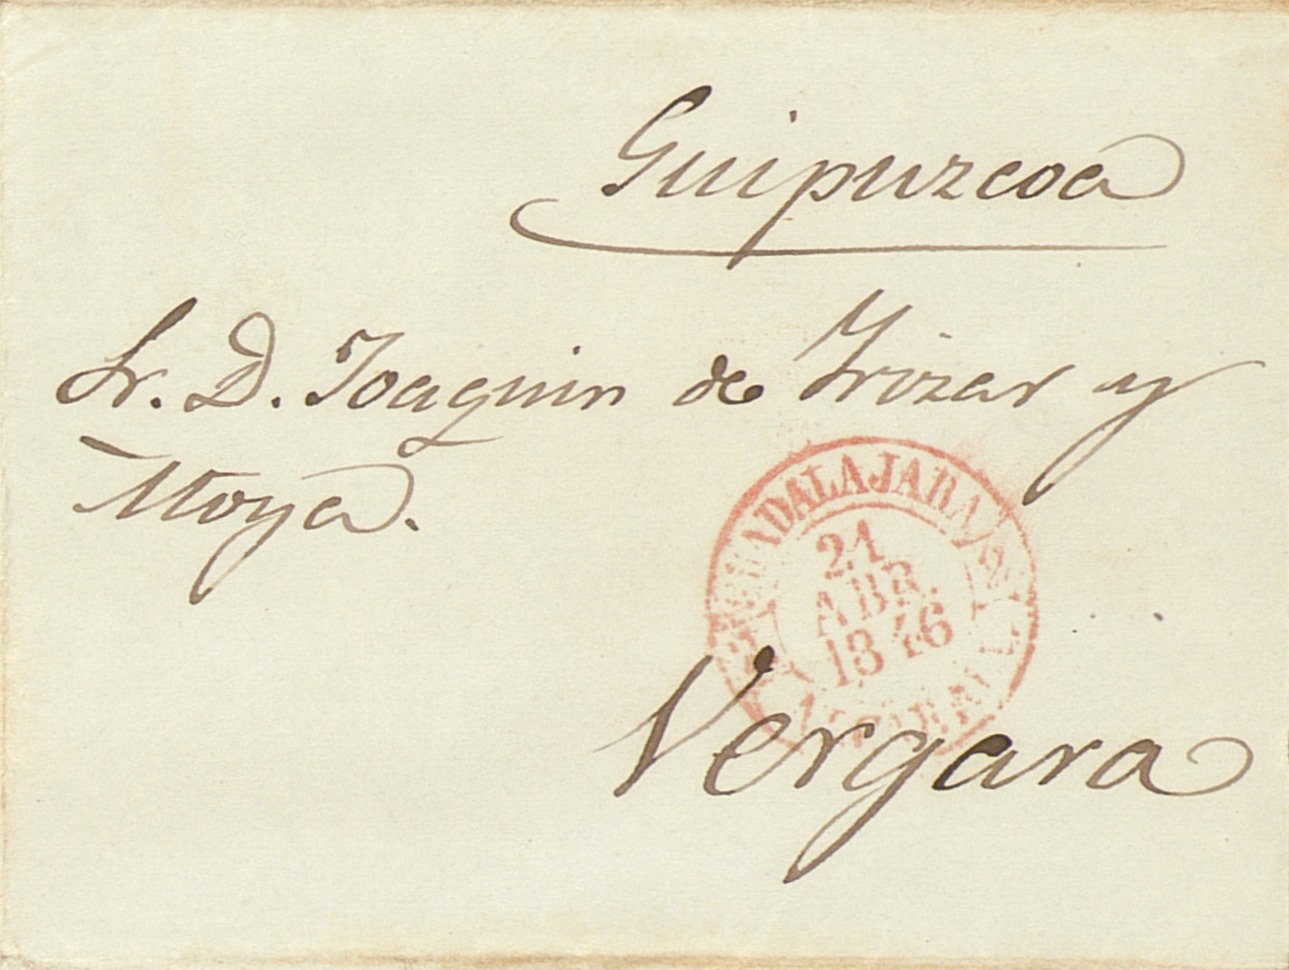 Guipuzcoa
Sr. D. Joaquin de Yrizar y
Moya.
GUADALAJARA
21
ABR.
1846
Vergara